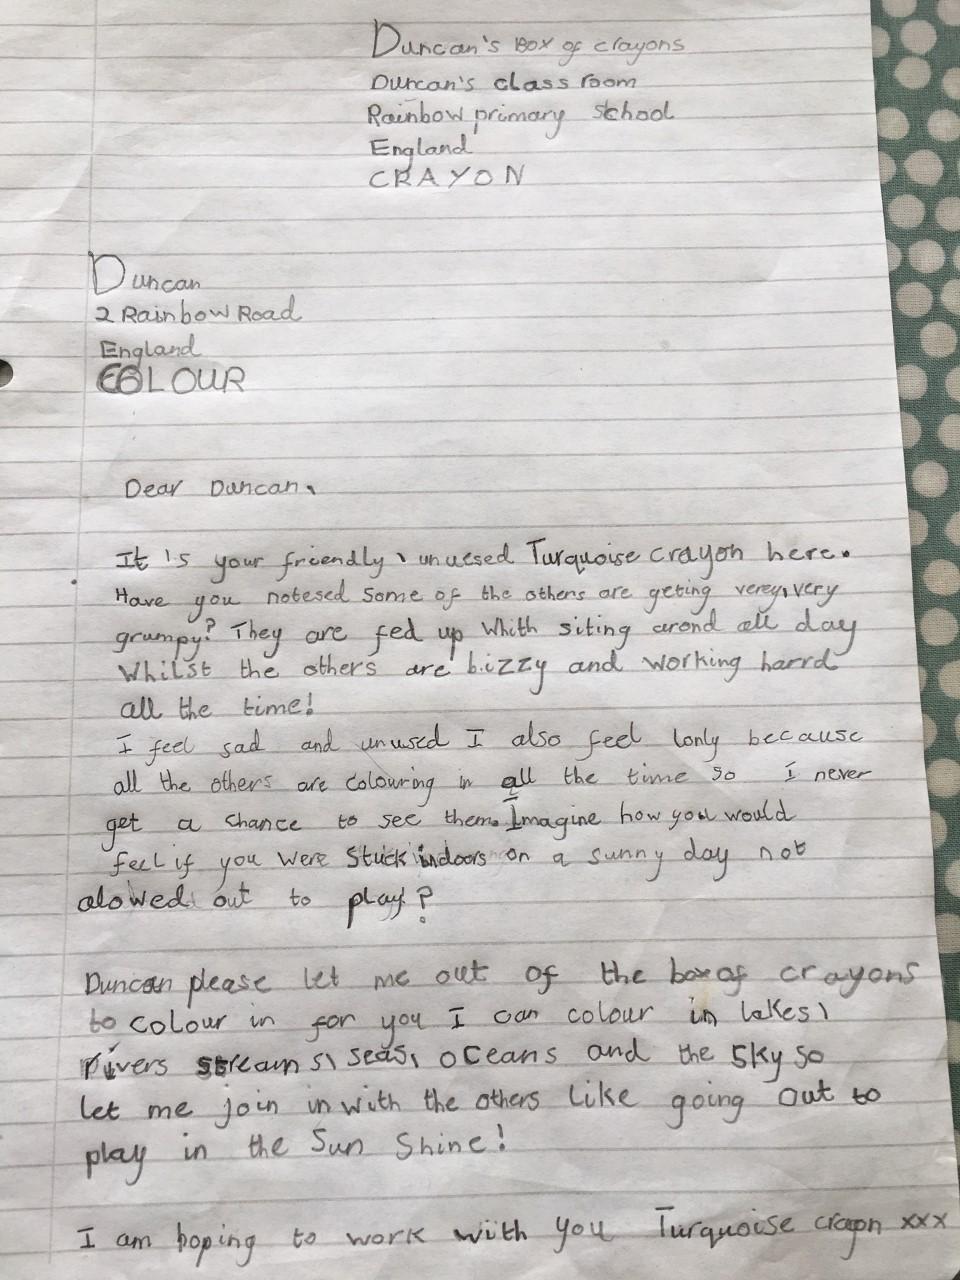 Duncan's Box of crayons
Duncan's class room
Rainbow primary school
England
CRAYON
Duncan
2 Rainbow Road
England
COLOUR
Dear Duncan,
It is your friendly, unuesed Turquoise crayon here.
Have you notesed some of the others are geting verey, very
grumpy? They are fed up whith siting arond all day
Whilst the others are bizzy and working harrd
all the time!
I feel sad and unused I also feel lonly because
all the others are colouring in all the time so I never
get a chance to see them. Imagine how you would
feel if you were stuck indoors on a sunny day not
alowed out to play?
Duncan please let me out of the box of crayons
to colour in for you I can colour in lakes,
rivers streams, seas, oceans and the sky so
let me join in with the others like going out to
play in the Sun Shine!
I am hoping to work with you Turquoise crayon xxx